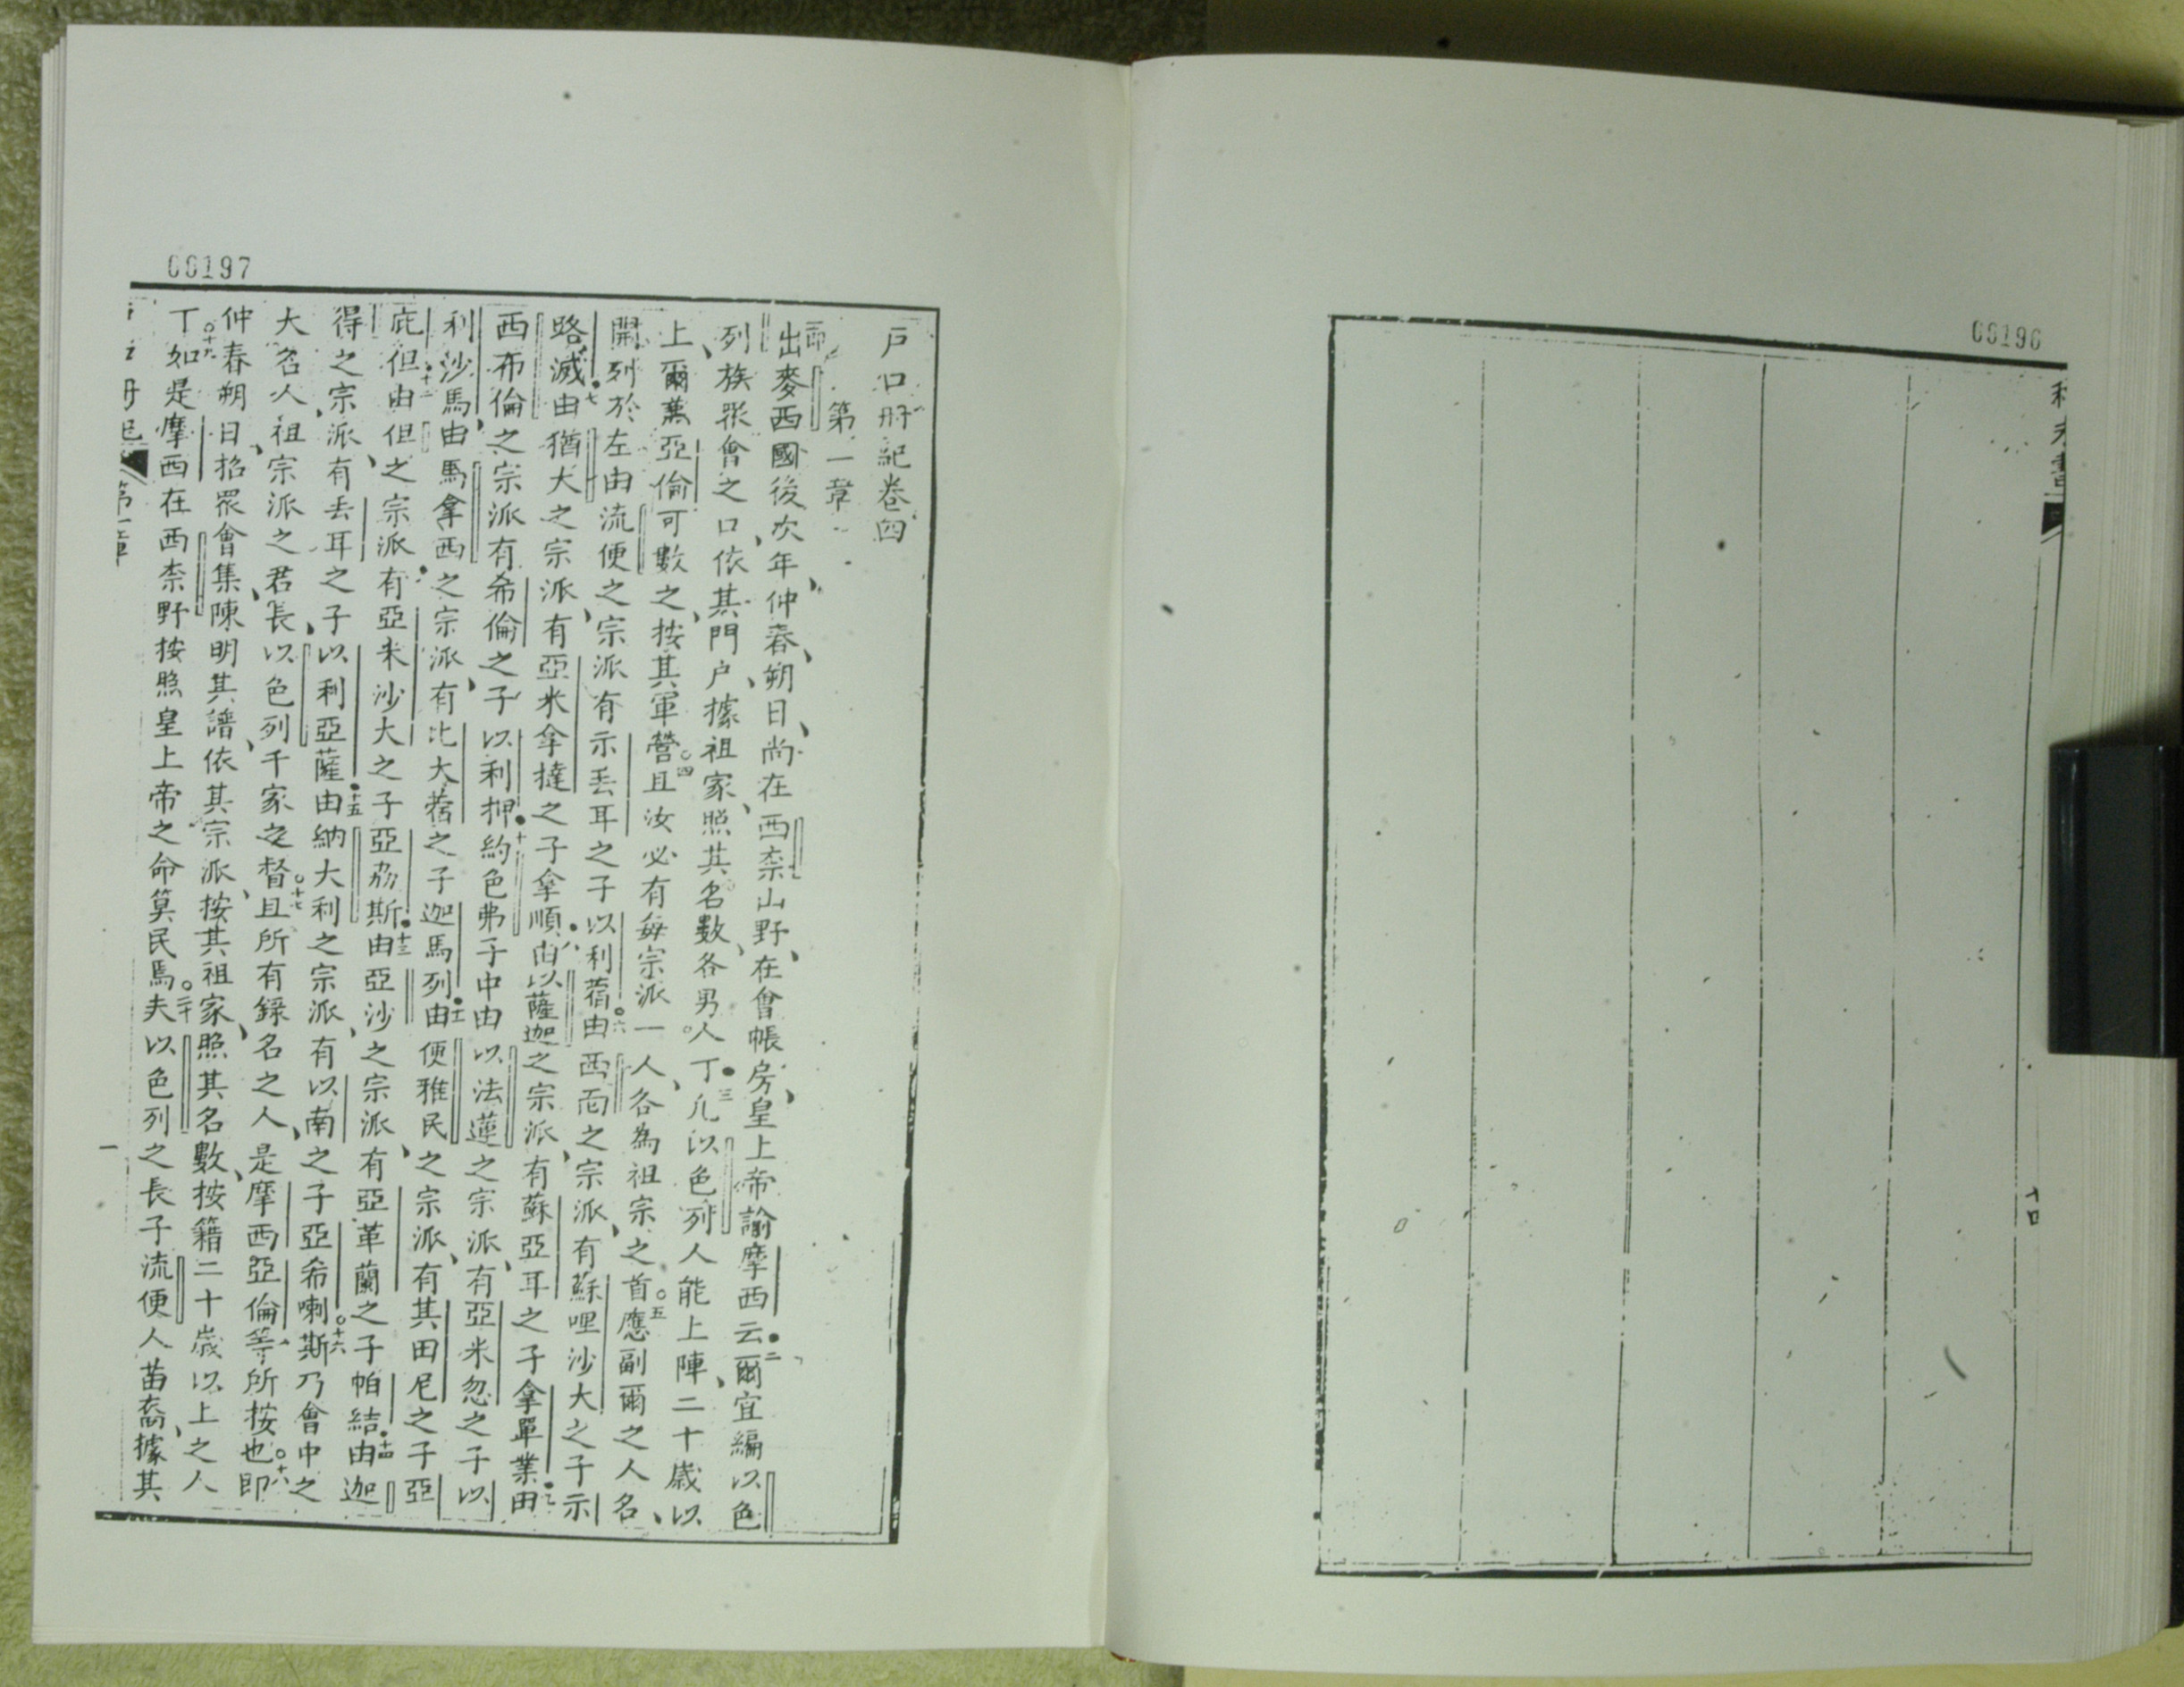 00196
十四
00197
戶口册紀卷四
第一章
出麥西國後次年、仲春、朔日、尚在西柰山野、在會帳房、皇上帝諭摩西云●二爾宜編以色
列、族眾會之口、依其門户、據祖家、照其名數、各男人丁●三凡以色列人能上陣、二十歲以
上爾萬亞倫可數之、按其軍營○四且汝必有每宗派一人、各為祖宗之首○五應副爾之人名、
開列於左由流便之宗派、有示丟耳之子以利蓿○六由西面之宗派、有蘇哩沙大之子示
路滅●七由猶大之宗派、有亞米拿撻之子拿順●八由以薩迦之宗派、有蘇亞耳之子拿單業●九由
西布倫之宗派有希倫之子以利押●十約色弗子中由以法蓮之宗派、有亞米忽之子以
利沙馬、由馬拿西之宗派、有比大蓿之子迦馬列●十一由便雅民之宗派、有其田尼之子亞
庇但●十二由但之宗派有亞米沙大之子亞剙斯●十三由亞沙之宗派、有亞革蘭之子帕結●十四由迦
得之宗派、有丟耳之子以利亞薩●十五由納大利之宗派、有以南之子亞希喇斯○十六乃會中之
大名人、祖宗派之君長、以色列千家之督○十七且所有錄名之人、是摩西亞倫等所按也○十八即
仲春朔日、招眾會集、陳明其譜、依其宗派、按其祖家、照其名數、按籍二十歲以上之人
丁○十九如是摩西在西柰野按照皇上帝之命算民焉○二十夫以色列之長子流便人苗裔、據其
第一章
一